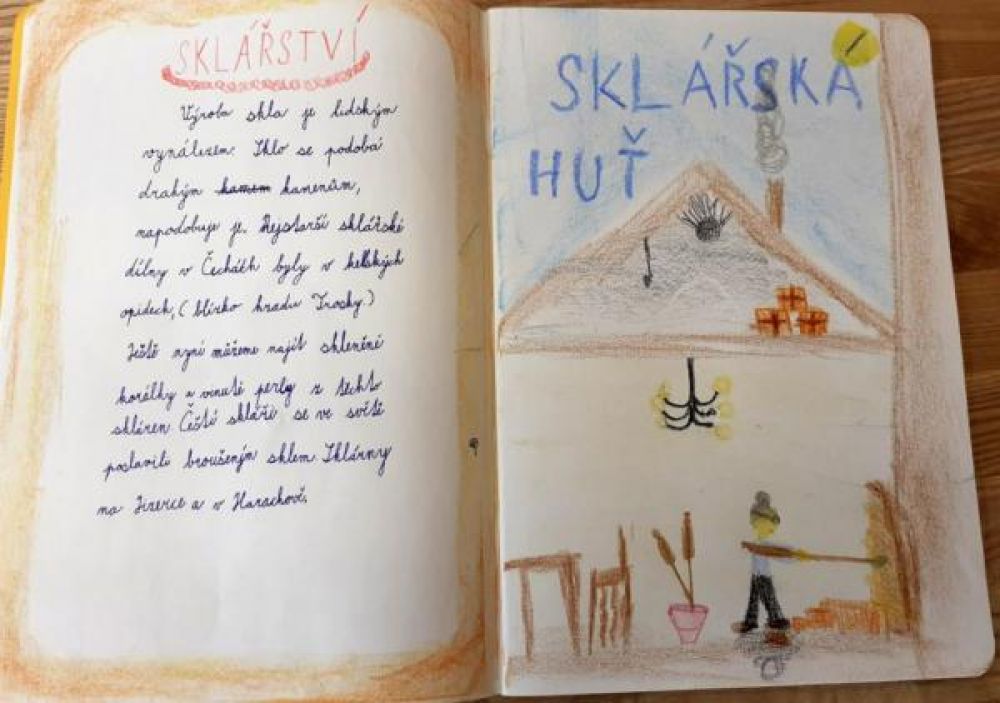 SKLÁŘSTVÍ
Výroba skla je lidským
vynálezem. Sklo se podobá
drahým kamenům,
napodobuje je. Nejstarší sklářské
dílny v Čecháh byly v keltských
opidech, (blízko hradu Trosky.)
Ještě nyní můžeme najít skleněné
korálky a vinuté perly z těchto
skláren. Čeští skláři se ve světě
proslavili broušeným sklem. Sklárny
na Jizerce a v Harachově.
SKLÁŘSKÁ
HUŤ